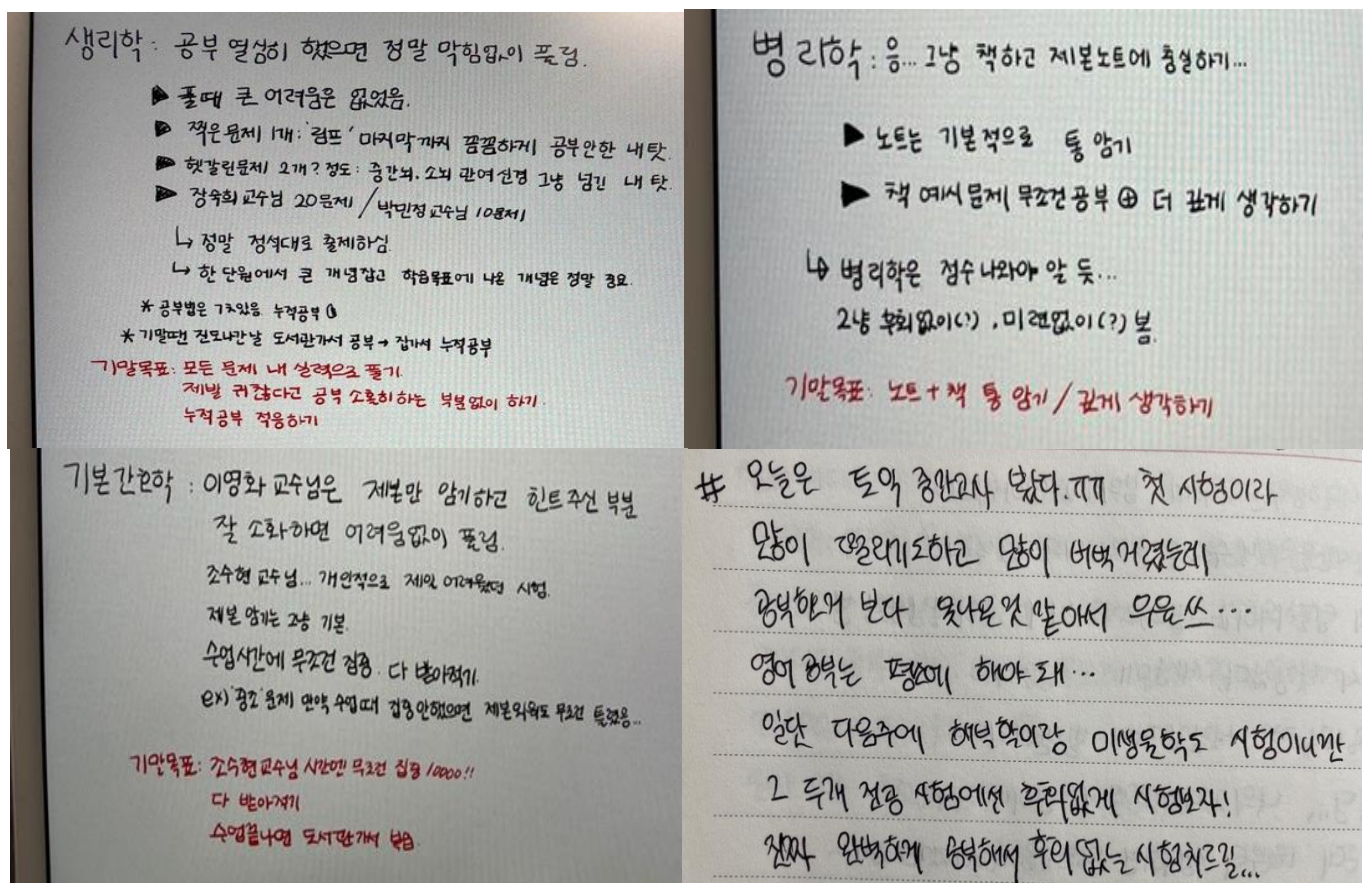 생리학 : 공부 열심히 했으면 정말 막힘없이 풀림.
▶ 풀때 큰 어려움은 없었음.
▶ 찍은문제 1개 : '림프' 마지막까지 꼼꼼하게 공부안한 내탓.
▶ 헷갈린문제 2개? 정도 : 중간뇌, 소뇌 관여신경 그냥 넘긴 내 탓.
▶ 장숙희교수님 20문제 / 박민정교수님 10문제
↳ 정말 정석대로 출제하심
↳ 한 단원에서 큰 개념잡고 학습목표에 나온 개념은 정말 중요.
* 공부법은 가있음. 누적공부
* 기말땐 진도나간날 도서관가서 공부 → 집가서 누적공부
기말목표 : 모든 문제 내 실력으로 풀기.
제발 귀찮다고 공부 소홀히하는 부분없이 하기.
누적공부 적응하기
병리학 : 음... 그냥 책하고 제본노트에 충실하기...
▶ 노트는 기본적으로 통 암기
▶ 책 예시문제 무조건공부 ⊕ 더 깊게 생각하기
↳ 병리학은 점수나와야 알 듯...
그냥 후회없이(?), 미련없이(?) 봄.
기말목표 : 노트 + 책 통 암기 / 깊게 생각하기
기본간호학 : 이영화 교수님은 제본만 암기하고 힌트주신 부분
잘 소화하면 어려움없이 풀림.
조수현 교수님... 개인적으로 제일 어려웠던 시험.
제본 암기는 그냥 기본.
수업시간에 무조건 집중. 다 받아적기.
ex) '중조' 문제 만약 수업때 집중안했으면 제본외워도 무조건 틀렸음...
기말목표 : 조수현교수님 시간엔 무조건 집중 10000!!
다 받아적기
수업끝나면 도서관가서 복습.
# 오늘은 토익 중간고사 봤다.ㅠㅠ 첫 시험이라
많이 떨리기도하고 많이 버벅거렸는데
공부한거 보다 못나온것 같아서 우울쓰...
영어 공부는 평소에 해야 돼...
일단 다음주에 해부학이랑 미생물학도 시험이니깐
그 두개 전공 시험에선 후회없게 시험보자!
진짜 완벽하게 공부해서 후회 없는 시험치르길...